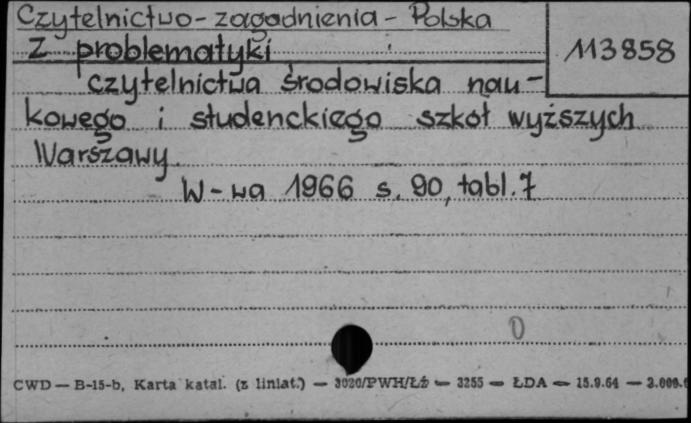 Czytelnictwo - zagadnienia - Polska
113858
Z problematyki
czytelnictwa środowiska nau-
kowego i studenckiego szkół wyższych
Warszawy.
W-wa 1966 s. 90, tabl. 7
0
CWD — B-15-b, Karta katal. (z liniat.) — 3020/PWH/Łż — 3255 — ŁDA — 15.9.64 — 3.000.0